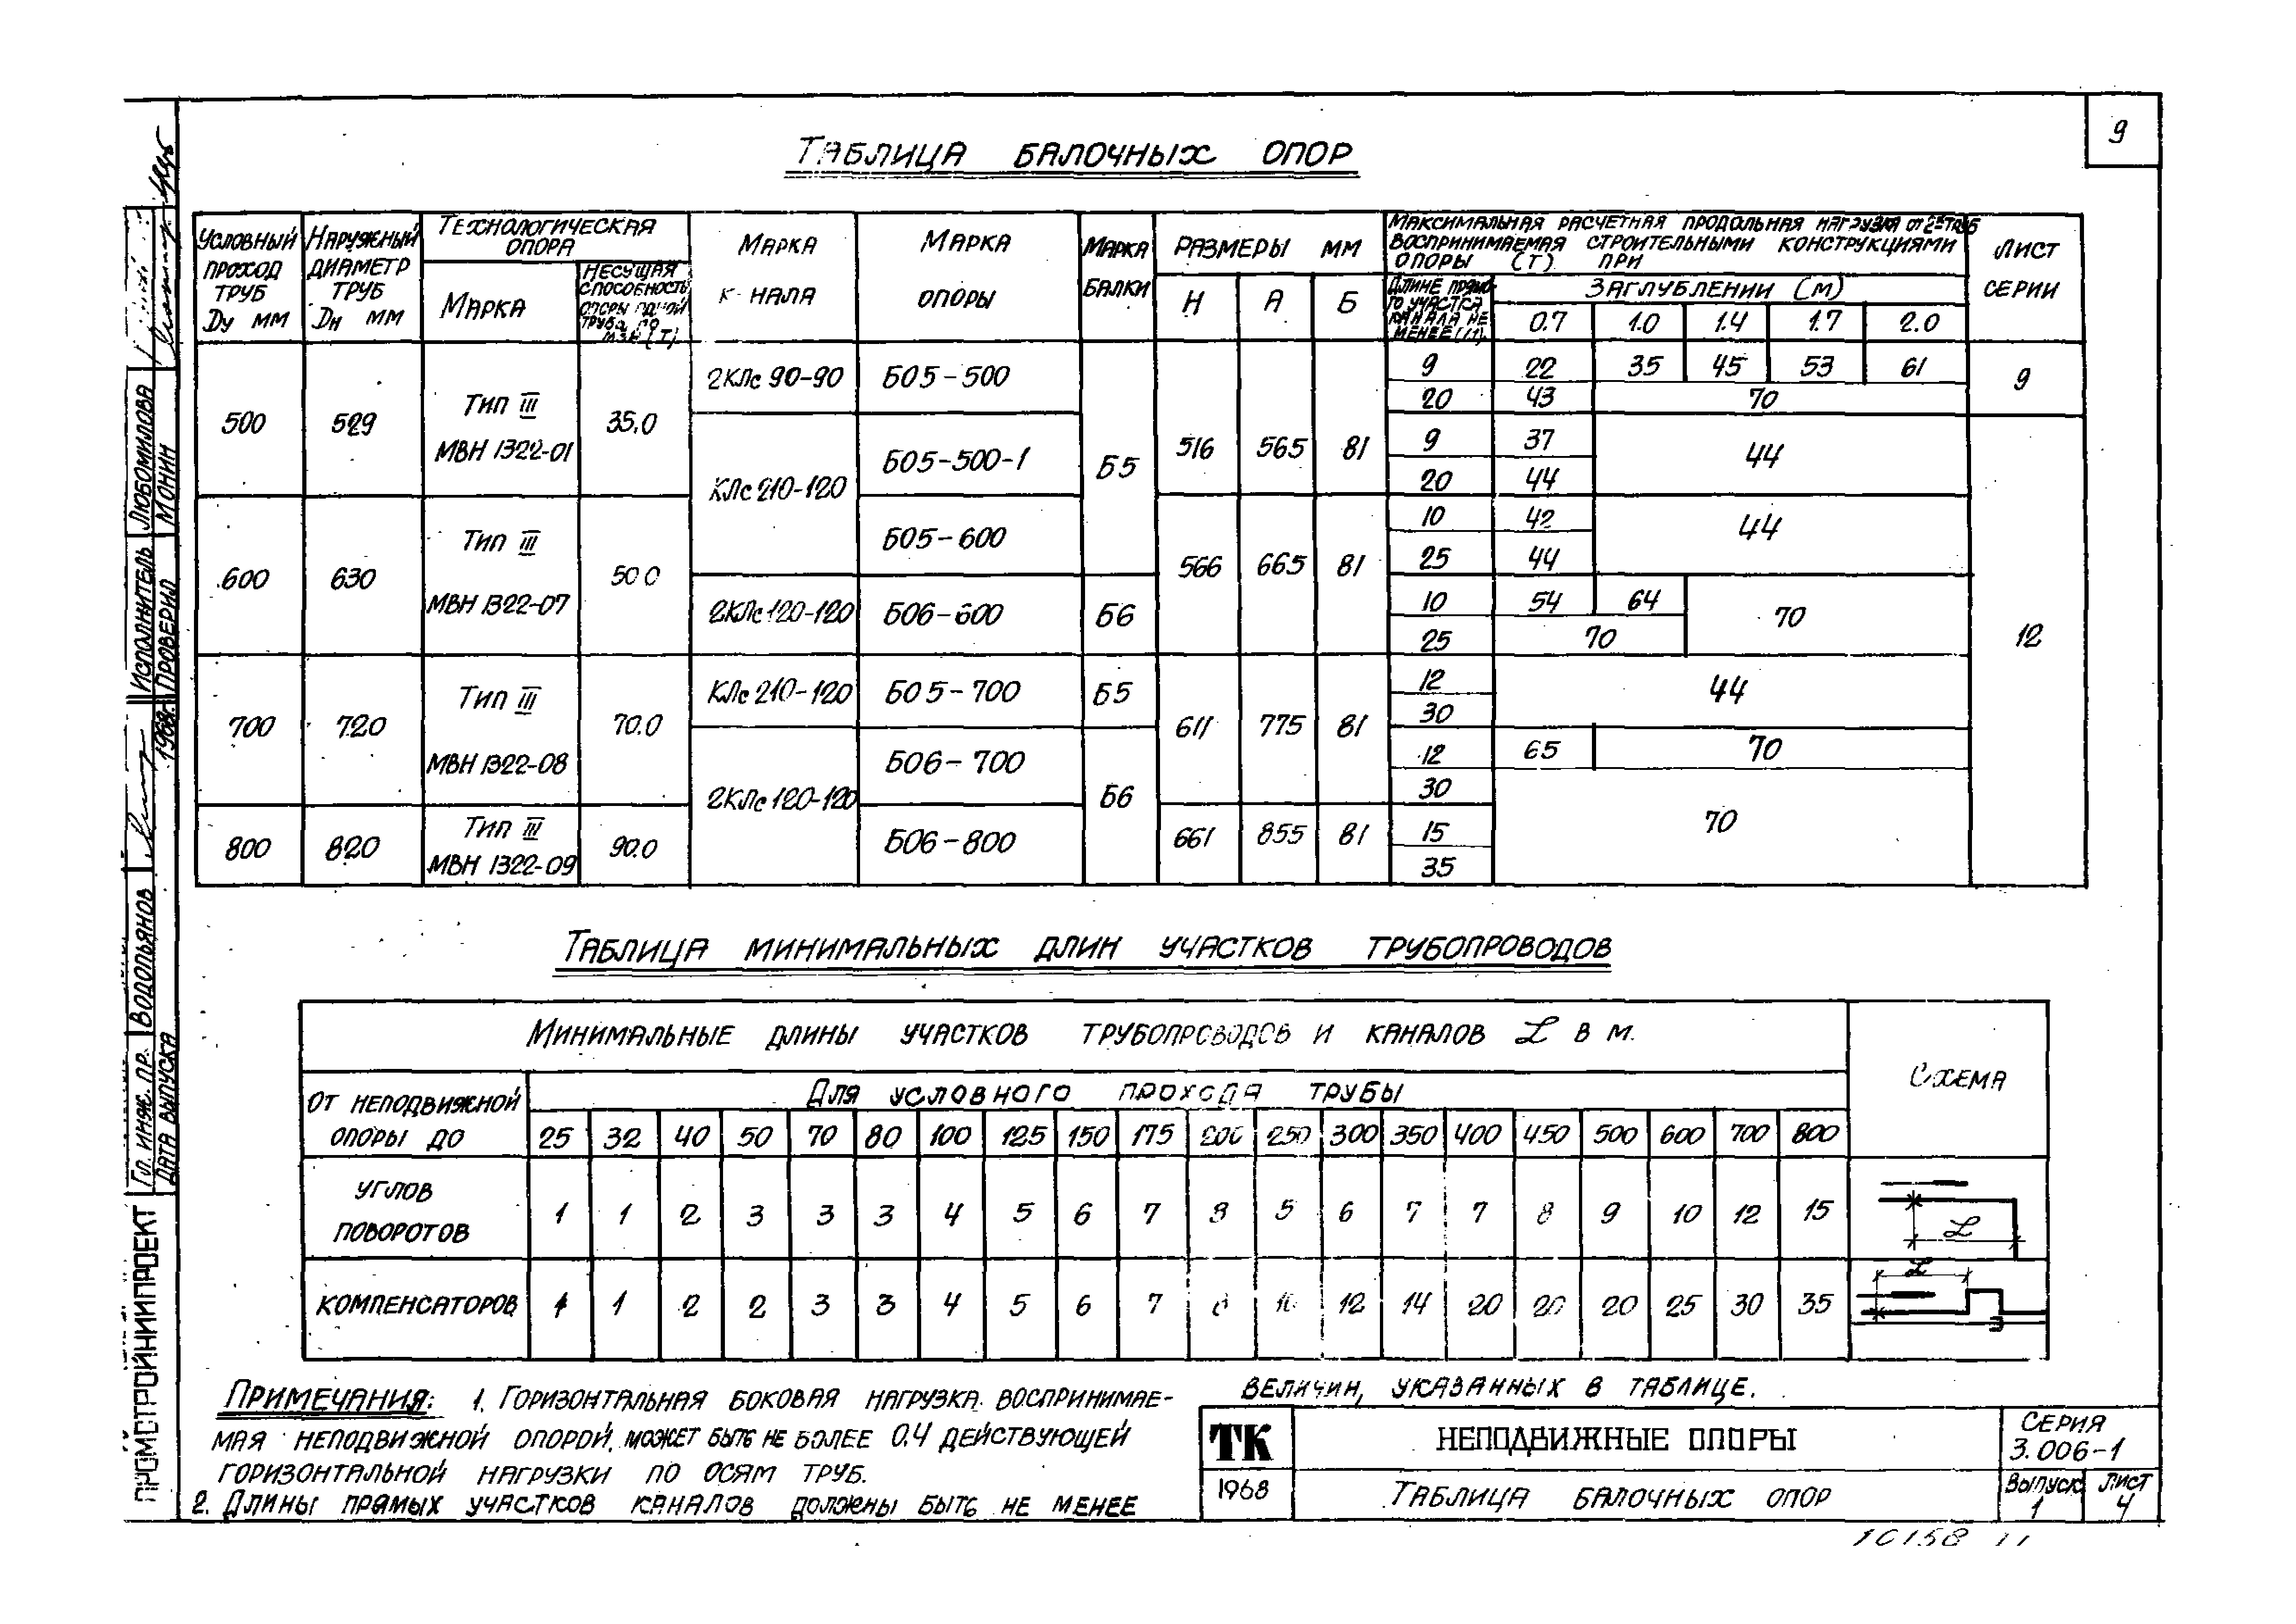 9
ТАБЛИЦА БАЛОЧНЫХ ОПОР
УСЛОВНЫЙ ПРОХОД ТРУБ Dу ММ
НАРУЖНЫЙ ДИАМЕТР ТРУБ Dн ММ
ТЕХНОЛОГИЧЕСКАЯ ОПОРА
МАРКА
НЕСУЩАЯ СПОСОБНОСТЬ ОПОРЫ
МАРКА К НАЛА
МАРКА ОПОРЫ
МАРКА БАЛКИ
РАЗМЕРЫ ММ
Н А Б
МАКСИМАЛЬНАЯ РАСЧЕТНАЯ ПРОДОЛЬНАЯ НАГРУЗКА ОТ 2Х ТРУБ
ВОСПРИНИМАЕМАЯ СТРОИТЕЛЬНЫМИ КОНСТРУКЦИЯМИ
ОПОРЫ (Т) ПРИ
ДЛИНЕ ПРЯМО-
ГО УЧАСТКА
КАНАЛА НЕ
МЕНЕЕ (М).
ЗАГЛУБЛЕНИИ (М)
0.7 1.0 1.4 1.7 2.0
ЛИСТ СЕРИИ
500 529 ТИП III МВН 1322-01 35.0
2КЛс 90-90 Б05-500 Б5 516 565 81 9 22 35 45 53 61 9
20 43 70
КЛс 210-120 Б05-500-1 9 37 44 12
20 44
600 630 ТИП III МВН 1322-07 50 0
Б05-600 566 665 81 10 42 44
25 44
2КЛс 120-120 Б06-600 Б6 10 54 64 70
25 70
700 720 ТИП III МВН 1322-08 70.0
КЛс 210-120 Б05-700 Б5 611 775 81 12 44
30
2КЛс 120-120 Б06-700 Б6 12 65 70
30 70
800 820 ТИП III МВН 1322-09 90.0
Б06-800 661 855 81 15
35
ТАБЛИЦА МИНИМАЛЬНЫХ ДЛИН УЧАСТКОВ ТРУБОПРОВОДОВ
МИНИМАЛЬНЫЕ ДЛИНЫ УЧАСТКОВ ТРУБОПРОВОДОВ И КАНАЛОВ L В М.
СХЕМА
ОТ НЕПОДВИЖНОЙ ОПОРЫ ДО
ДЛЯ УСЛОВНОГО ПРОХОДА ТРУБЫ
25 32 40 50 70 80 100 125 150 175 200 250 300 350 400 450 500 600 700 800
УГЛОВ ПОВОРОТОВ
1 1 2 3 3 3 4 5 6 7 8 5 6 7 7 8 9 10 12 15
L
КОМПЕНСАТОРОВ
1 1 2 2 3 3 4 5 6 7 8 10 12 14 20 20 20 25 30 35
L
ПРИМЕЧАНИЯ: 1. ГОРИЗОНТАЛЬНАЯ БОКОВАЯ НАГРУЗКА ВОСПРИНИМАЕ-
МАЯ НЕПОДВИЖНОЙ ОПОРОЙ, МОЖЕТ БЫТЬ НЕ БОЛЕЕ 0.4 ДЕЙСТВУЮЩЕЙ
ГОРИЗОНТАЛЬНОЙ НАГРУЗКИ ПО ОСЯМ ТРУБ.
2. ДЛИНЫ ПРЯМЫХ УЧАСТКОВ КАНАЛОВ ДОЛЖНЫ БЫТЬ НЕ МЕНЕЕ
ВЕЛИЧИН, УКАЗАННЫХ В ТАБЛИЦЕ.
ТК
1968
НЕПОДВИЖНЫЕ ОПОРЫ
ТАБЛИЦА БАЛОЧНЫХ ОПОР
СЕРИЯ
3.006-1
ВЫПУСК 1
ЛИСТ 4
10158 11
ПРОМСТРОЙНИИПРОЕКТ
ГЛ. ИНЖ. ПР. ВОДОПЬЯНОВ
ДАТА ВЫПУСКА 1968г.
ИСПОЛНИТЕЛЬ ЛЮБОМИЛОВА
ПРОВЕРИЛ МОНИН